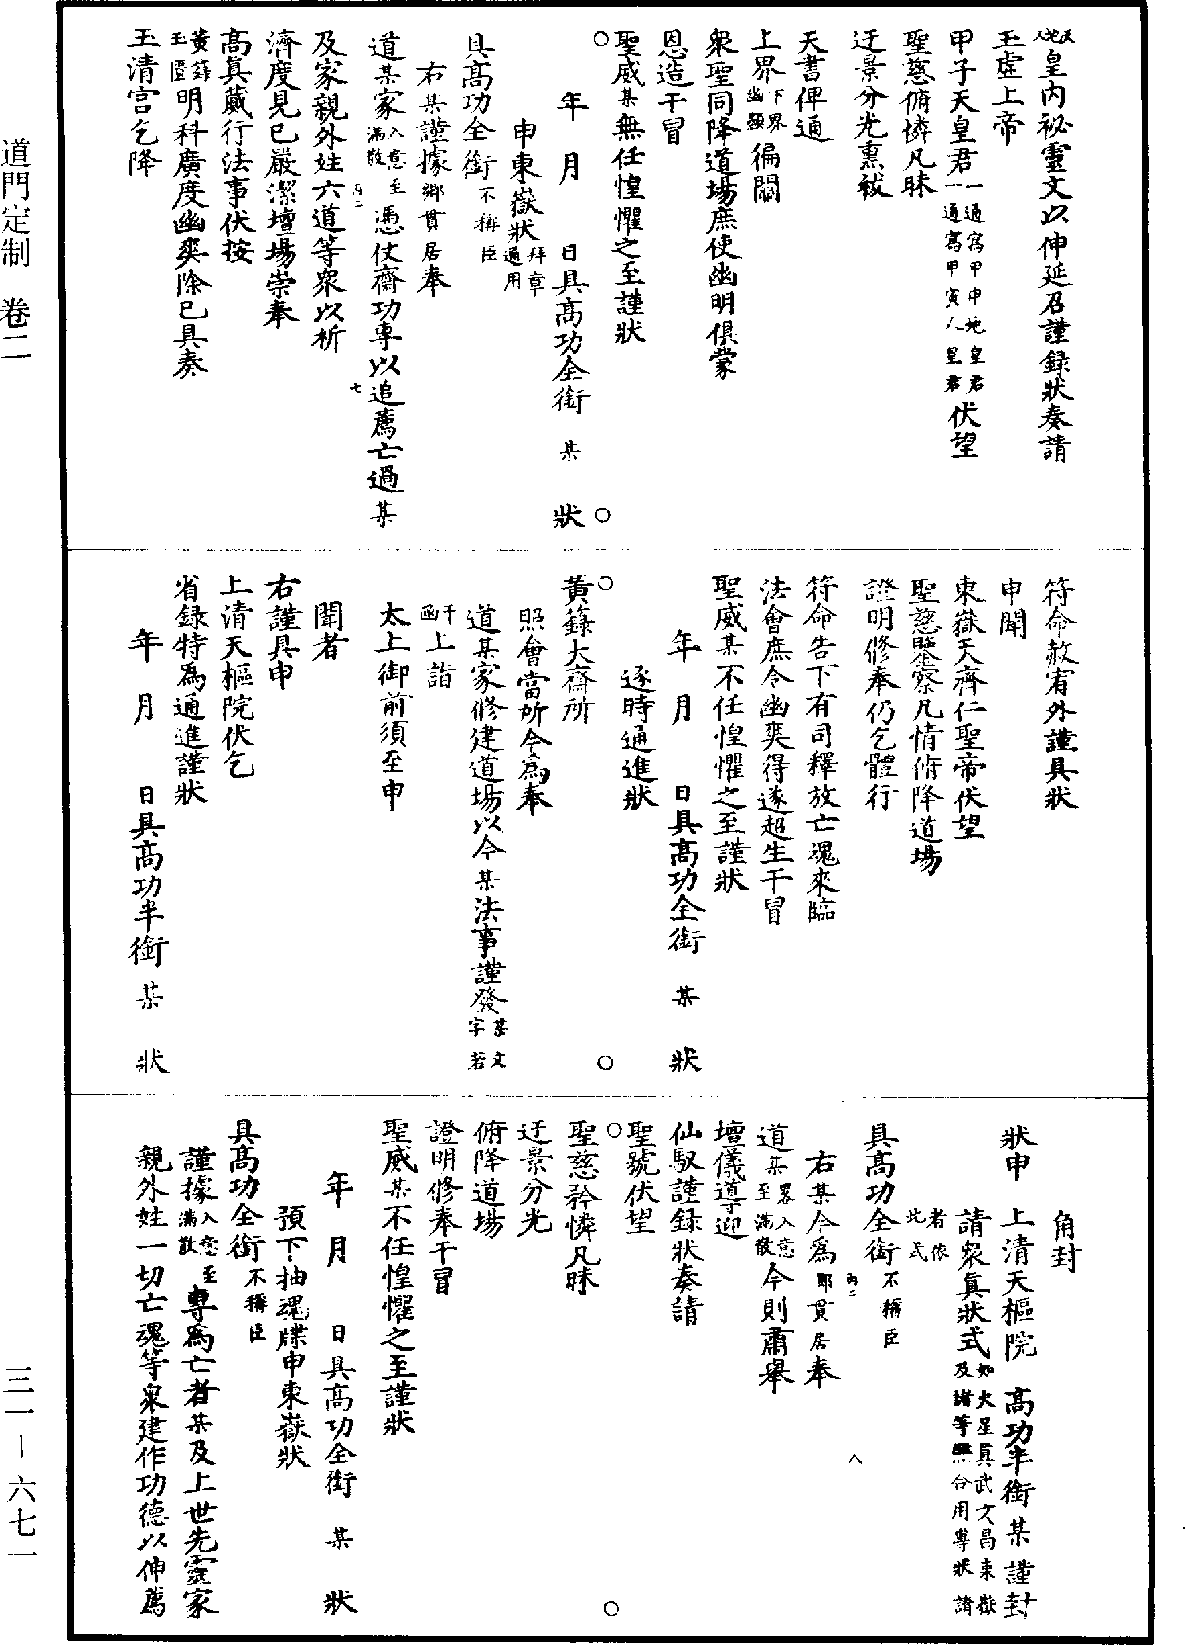 天地人皇內祕靈文以伸延召謹録狀奏請
玉虛上帝
甲子天皇君一通寫甲申地皇君一通寫甲寅人皇君伏望
聖慈俯憐凡昧
迂景分光熏祓
天書俾通
上界下界幽顯徧關
衆聖同降道場庶使幽明俱蒙
恩造干冒
聖威某無任惶懼之至謹狀
○　○
年　月　日具高功全銜　某　狀
申東嶽狀拜章通用
具高功全銜不稱臣
右某謹據鄉貫居奉
道某家入意至滿散憑仗齋功專以追薦亡過某
丙二　七
及家親外姓六道等衆以祈
濟度見已嚴潔壇場崇奉
高真蕆行法事伏按
黃籙玉匱明科廣度幽爽除已具奏
玉清宫乞降
符命赦宥外謹具狀
申聞
東嶽天齊仁聖帝伏望
聖慈鑒察凡情俯降道場
證明修奉仍乞體行
符命告下有司釋放亡魂來臨
法會庶令幽爽得遂超生干冒
聖威某不任惶懼之至謹狀
年　月　日具高功全銜　某　狀
逐時通進狀
○　○
黃籙大齋所
照會當所今爲奉
道某家修建道場以今某法事謹發某文字若
干函上詣
太上御前須至申
聞者
右謹具申
上清天樞院伏乞
省録特爲通進謹狀
年　月　日具高功半銜　某　狀
角封
狀申　上清天樞院　高功半銜某謹封
請衆真狀式如火星真武文昌東嶽及諸等無合用專狀請
者依此式
具高功全銜不稱臣
右某今爲鄉貫居奉
丙二　八
道某畧入意至滿散今則肅舉
壇儀導迎
仙馭謹録狀奏請
聖號伏望
○　○
聖慈矜憐凡昧
迂景分光
俯降道場
證明修奉干冒
聖威某不任惶懼之至謹狀
年　月　日具高功全銜　某　狀
預下抽魂牒申東嶽狀
具高功全銜不稱臣
謹據入意至滿散專爲亡者某及上世先靈家
親外姓一切亡魂等衆建作功德以伸薦
道門定制　卷二
三一－六七一